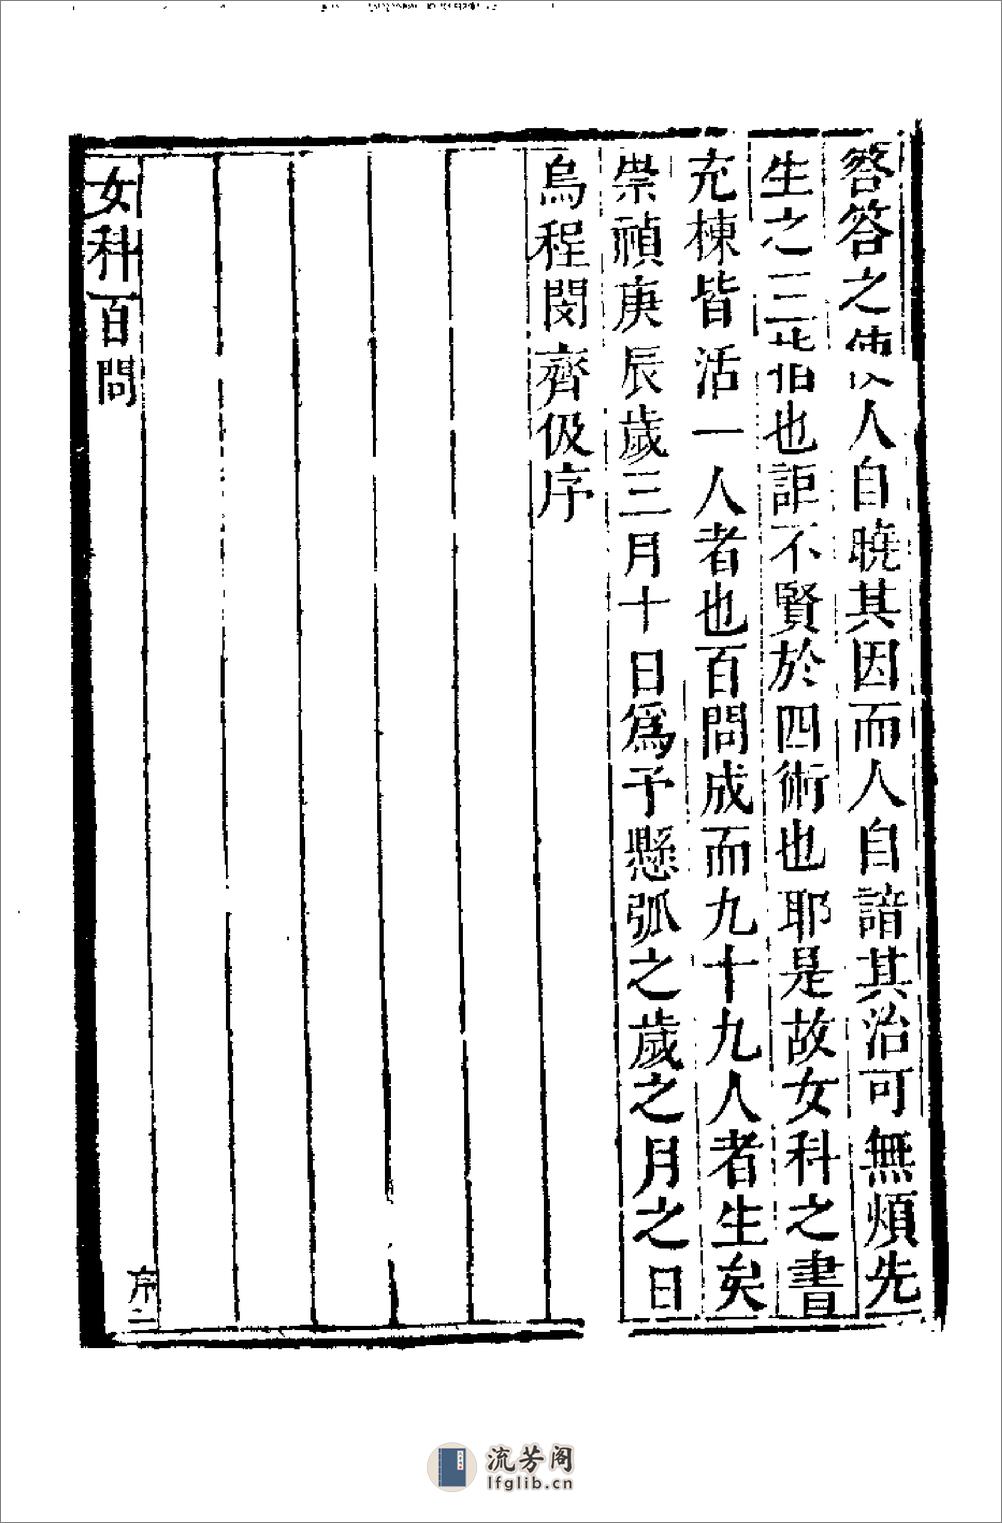 答答之使人人自曉其因而人自諳其治可無煩先
生之三指也詎不賢於四術也耶是故女科之書
充棟皆活一人者也百問成而九十九人者生矣
崇禎庚辰歲三月十日爲予懸弧之歲之月之日
烏程閔齊伋序
女科百問
序二
流芳阁
lfglib.cn